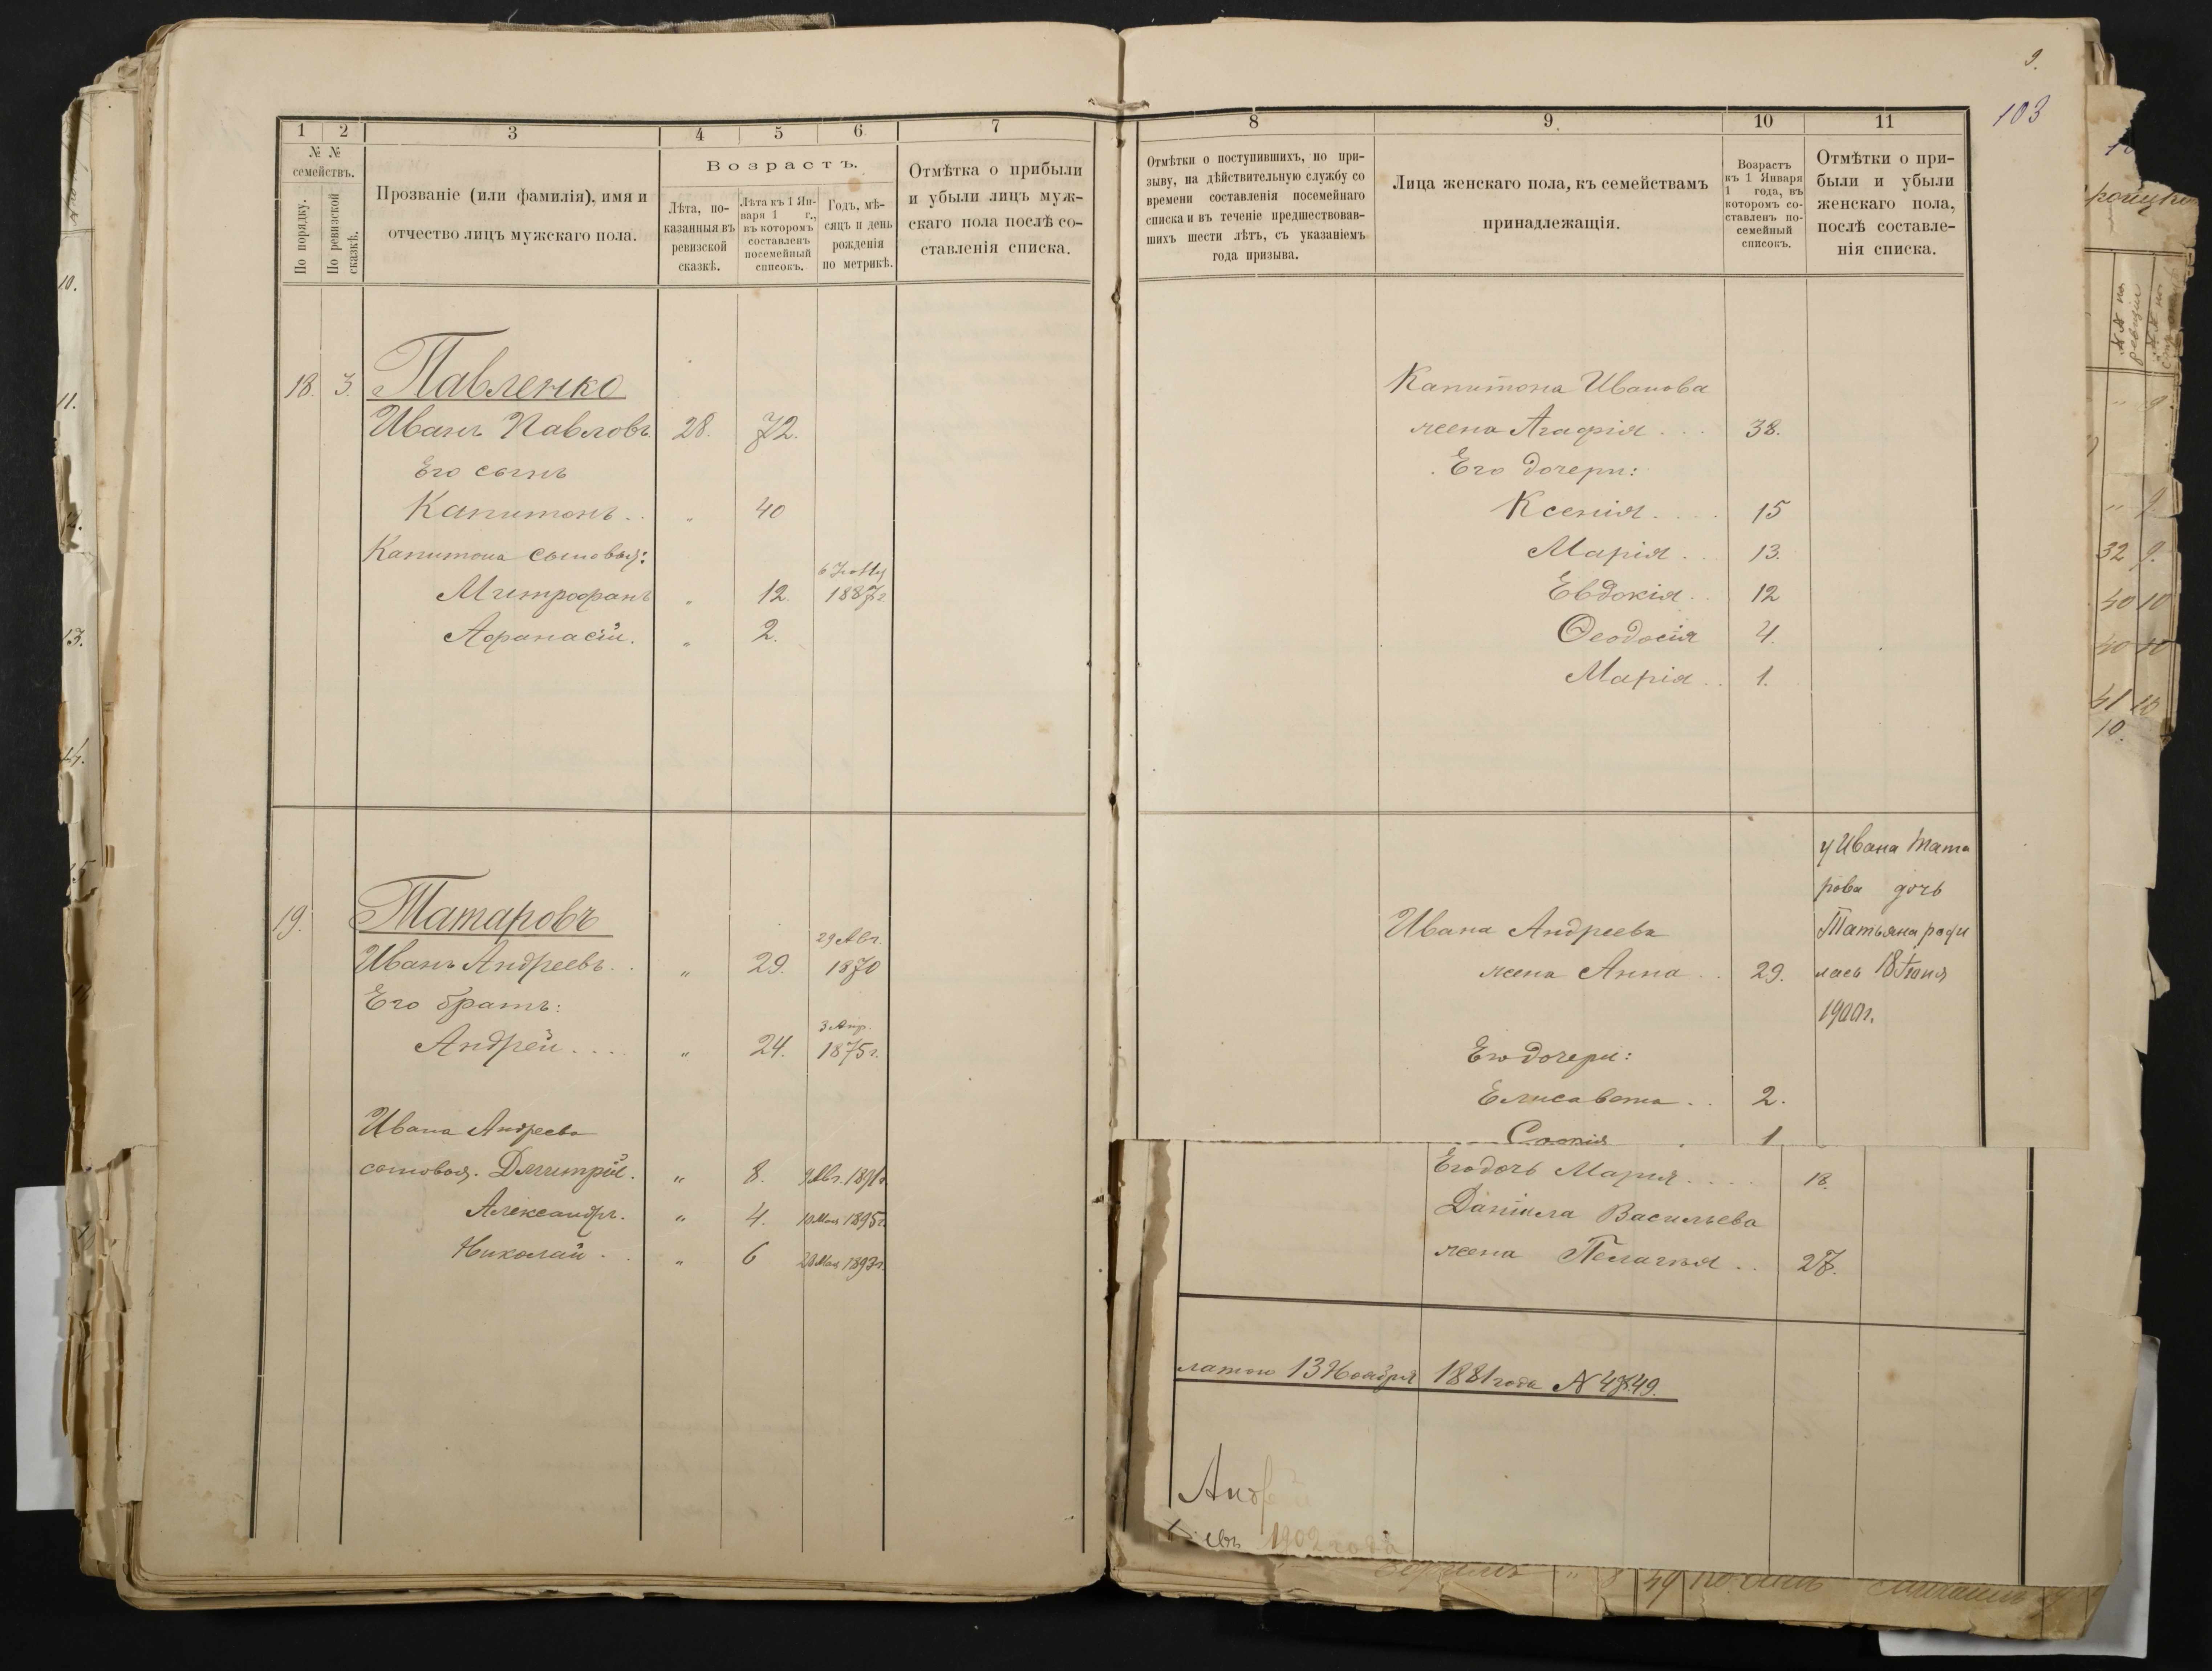 9.
103
1 2 3 4 5 6 7
№ №
семействъ.
По порядку.
По ревизской сказкѣ.
Прозваніе (или фамилія), имя и
отчество лицъ мужскаго пола.
Возрастъ.
Лѣта, по-
казанныя въ
ревизской
сказкѣ.
Лѣта къ 1 Ян-
варя 1 г.,
въ которомъ
составленъ
посемейный
списокъ.
Годъ, мѣ-
сяцъ и день
рожденія
по метрикѣ.
Отмѣтка о прибыли
и убыли лицъ муж-
скаго пола послѣ со-
ставленія списка.
18. 3. Павленко
Иванъ Павловъ. 28. 72.
Его сынъ
Капитонъ.. " 40
Капитона сыновья:
Митрофанъ " 12. 1887г.
Афанасій. " 2.
19. Татаровъ
29 Авг.
Иванъ Андреевъ.. " 29. 1870
Его братъ:
3 Апр.
Андрей.... " 24. 1875г.
Ивана Андреева
сыновья. Дмитрій. " 8. 9 Авг. 1891г.
Александръ. " 4. 10 Мая 1895г.
Николай.. " 6 1893г.
8 9 10 11
Отмѣтки о поступившихъ, по при-
зыву, на дѣйствительную службу со
времени составленія посемейнаго
списка и въ теченіе предшествовав-
шихъ шести лѣтъ, съ указаніемъ
года призыва.
Лица женскаго пола, къ семействамъ
принадлежащія.
Возрастъ
къ 1 Января
1 года, въ
которомъ со-
ставленъ по-
семейный
списокъ.
Отмѣтки о при-
были и убыли
женскаго пола,
послѣ составле-
нія списка.
Капитона Иванова
жена Агафія... 38.
Его дочери:
Ксенія.... 15
Марія.. 13.
Евдокія.. 12
Ѳеодосія 4.
Марія.. 1.
у Ивана Тата
рова дочь
Татьяна роди
лась 18 Іюня
1900г.
Ивана Андреева
жена Анна.. 29.
Его дочери:
Елисавета.. 2.
Софія . 1
Его дочь Марія.... 18.
Даніила Васильева
жена Пелагія.. 27.
латою 13 Ноября 1881 года № 4749.
Андрей
1902 года
10.
11.
13.
14.
32 9.
40 10
40 10
41 10
10.